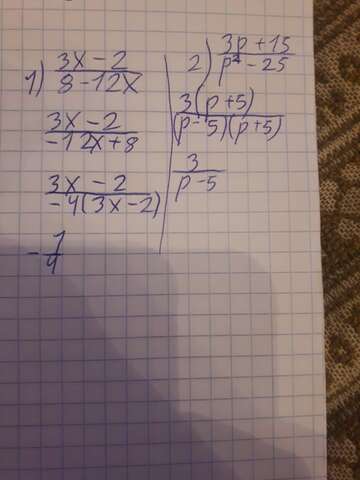 1) (3x - 2)/(8 - 12x)
(3x - 2)/(-12x + 8)
(3x - 2)/(-4(3x - 2))
-1/4
2) (3p + 15)/(p² - 25)
3(p + 5)/((p - 5)(p + 5))
3/(p - 5)